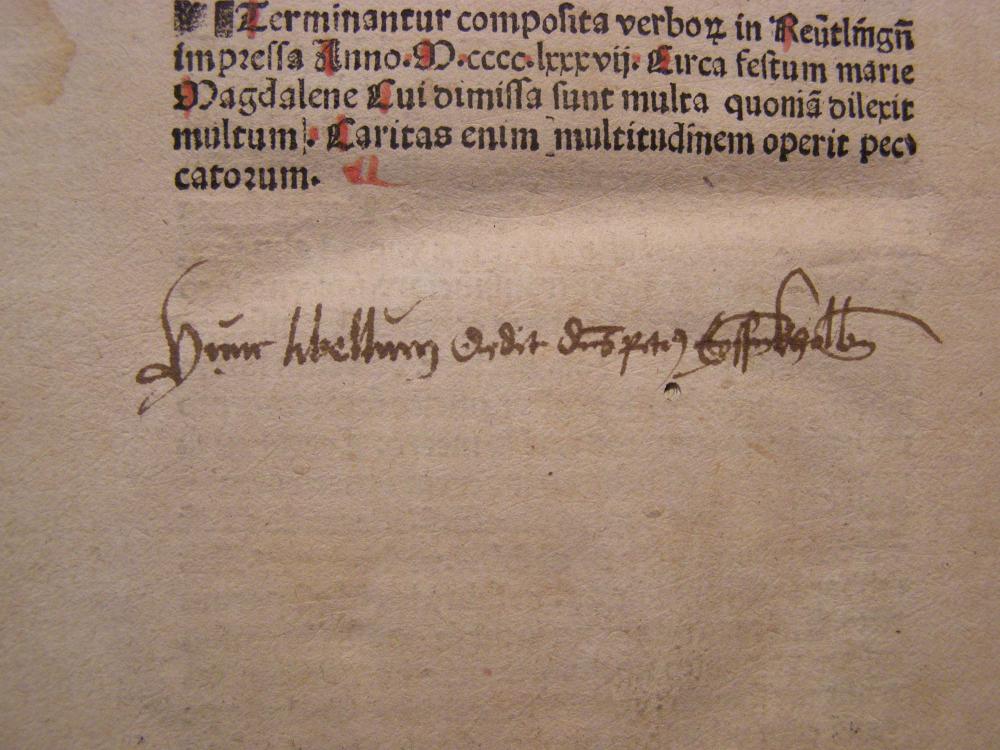 Terminantur composita verboꝝ in Reütlingñ
impressa Anno. M.cccc.lxxxvij. Circa festum marie
Magdalene Cui dimissa sunt multa quoniā dilexit
multum. Caritas enim multitudinem operit pec
catorum.
Hunc libellum dedit dn̄s petr